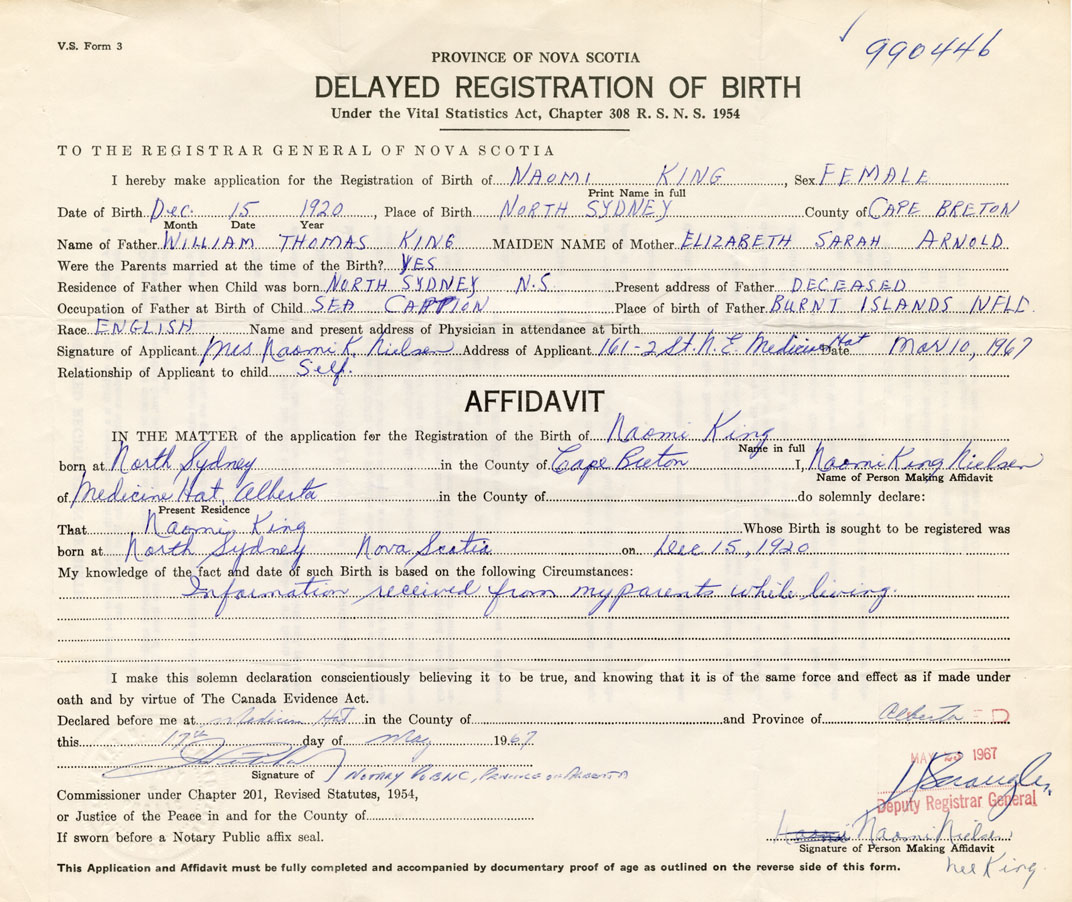 V.S. Form 3
990446
PROVINCE OF NOVA SCOTIA
DELAYED REGISTRATION OF BIRTH
Under the Vital Statistics Act, Chapter 308 R. S. N. S. 1954
TO THE REGISTRAR GENERAL OF NOVA SCOTIA
I hereby make application for the Registration of Birth of NAOMI KING, Sex FEMALE
Print Name in full
Date of Birth Dec. 15 1920, Place of Birth NORTH SYDNEY County of CAPE BRETON
Month Date Year
Name of Father WILLIAM THOMAS KING MAIDEN NAME of Mother ELIZABETH SARAH ARNOLD
Were the Parents married at the time of the Birth? YES
Residence of Father when Child was born NORTH SYDNEY N.S. Present address of Father DECEASED
Occupation of Father at Birth of Child SEA Place of birth of Father BURNT ISLANDS NFLD.
Race ENGLISH Name and present address of Physician in attendance at birth
Signature of Applicant Mrs Naomi K. Nielsen Address of Applicant 161-2 St. N.E. Medicine Hat Date Mar 10, 1967
Relationship of Applicant to child Self.
AFFIDAVIT
IN THE MATTER of the application for the Registration of the Birth of Naomi King
Name in full
born at North Sydney in the County of Cape Breton I, Naomi King Nielsen
Name of Person Making Affidavit
of Medicine Hat, Alberta in the County of do solemnly declare:
Present Residence
That Naomi King Whose Birth is sought to be registered was
born at North Sydney Nova Scotia on Dec 15, 1920
My knowledge of the fact and date of such Birth is based on the following Circumstances:
Information received from my parents while living.
I make this solemn declaration conscientiously believing it to be true, and knowing that it is of the same force and effect as if made under
oath and by virtue of The Canada Evidence Act.
Declared before me at Medicine Hat in the County of and Province of Alberta
this 17th day of May 1967
MAY 1967
Signature of NOTARY PUBLIC, PROVINCE OF ALBERTA
Commissioner under Chapter 201, Revised Statutes, 1954,
Deputy Registrar General
or Justice of the Peace in and for the County of
If sworn before a Notary Public affix seal.
Naomi Nielsen
Signature of Person Making Affidavit
nee King.
This Application and Affidavit must be fully completed and accompanied by documentary proof of age as outlined on the reverse side of this form.